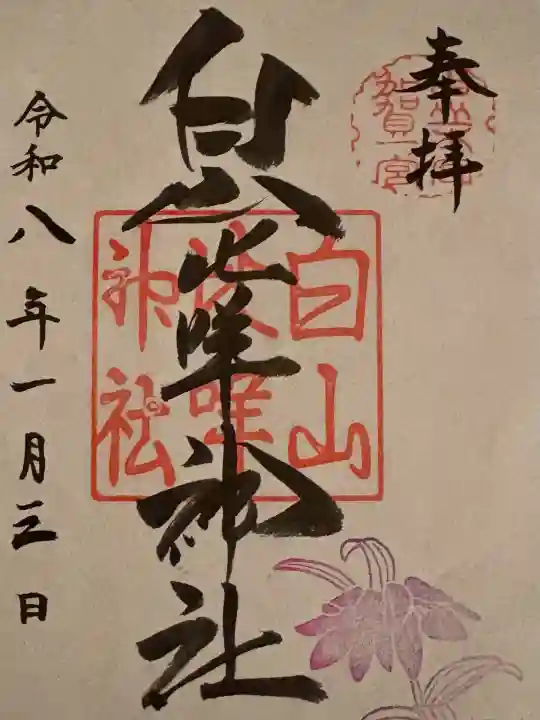 奉拝
加賀一宮
白山比咩神社
白山
比咩
神社
令和八年一月三日